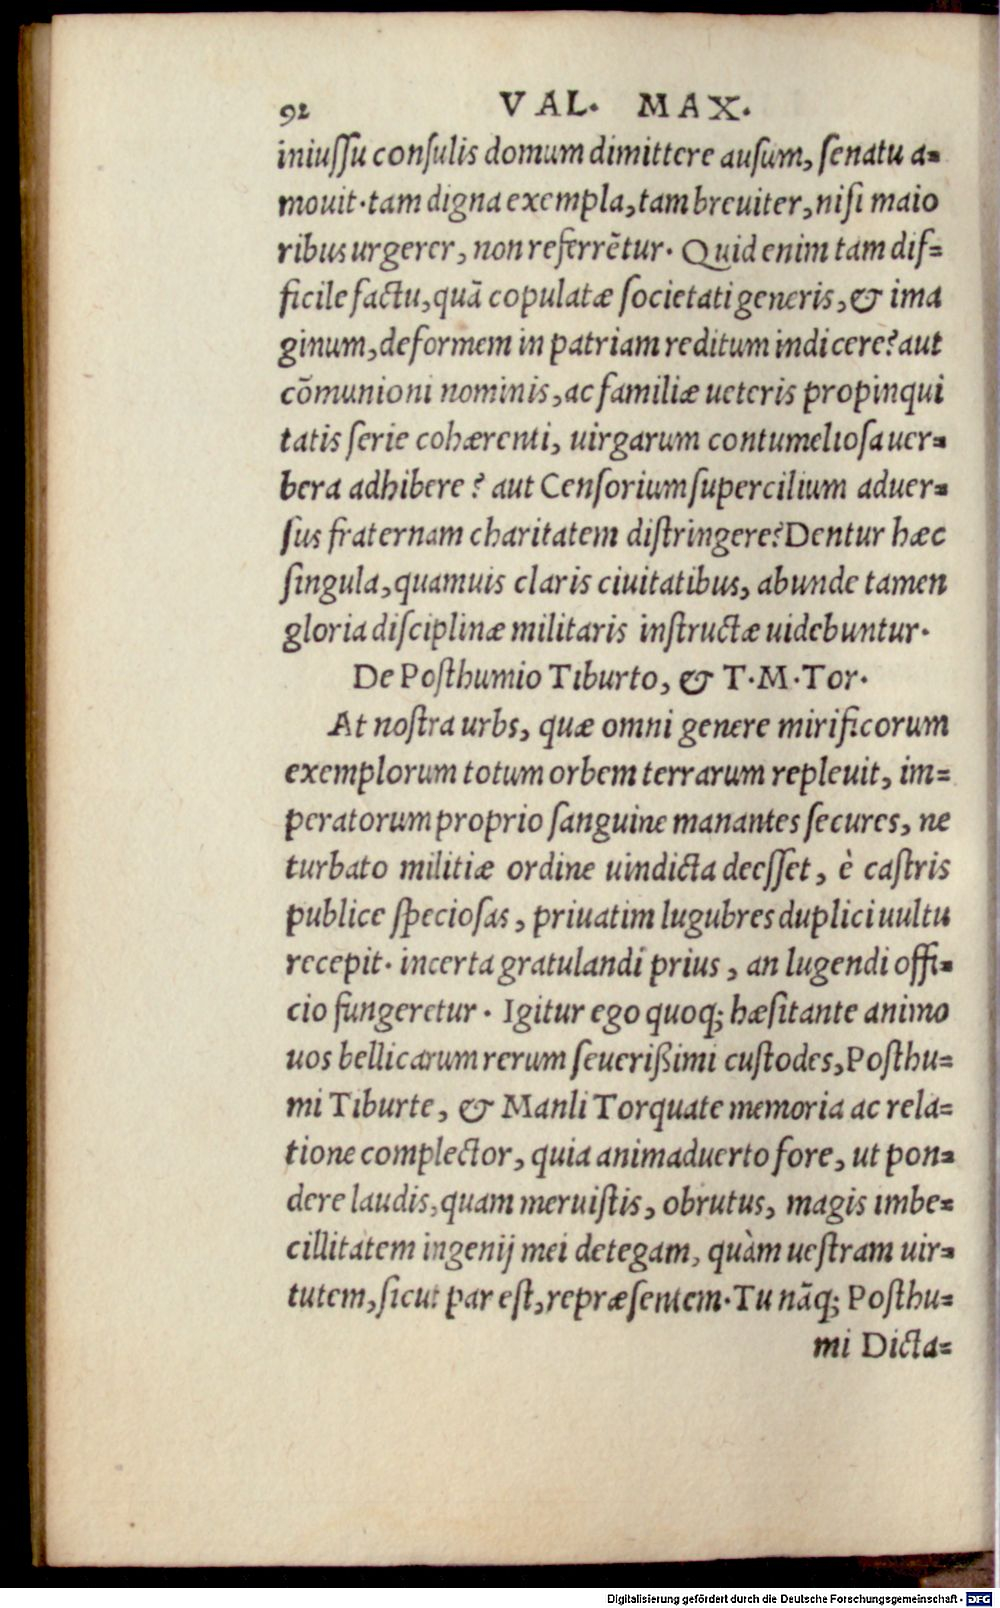 92 VAL. MAX.
iniuſſu conſulis domum dimittere auſum, ſenatu a=
mouit. tam digna exempla, tam breuiter, niſi maio
ribus urgerer, non referrētur. Quid enim tam dif=
ficile factu, quā copulatæ ſocietati generis, & ima
ginum, deformem in patriam reditum indicere? aut
cōmunioni nominis, ac familiæ ueteris propinqui
tatis ſerie cohærenti, uirgarum contumelioſa uer=
bera adhibere? aut Cenſorium ſupercilium aduer=
ſus fraternam charitatem diſtringere? Dentur hæc
ſingula, quamuis claris ciuitatibus, abunde tamen
gloria diſciplinæ militaris inſtructæ uidebuntur.
De Poſthumio Tiburto, & T.M.Tor.
At noſtra urbs, quæ omni genere mirificorum
exemplorum totum orbem terrarum repleuit, im=
peratorum proprio ſanguine manantes ſecures, ne
turbato militiæ ordine uindicta deeſſet, è caſtris
publice ſpecioſas, priuatim lugubres duplici uultu
recepit. incerta gratulandi prius, an lugendi offi=
cio fungeretur. Igitur ego quoq; hæſitante animo
uos bellicarum rerum ſeuerißimi cuſtodes, Poſthu=
mi Tiburte, & Manli Torquate memoria ac rela=
tione complector, quia animaduerto fore, ut pon=
dere laudis, quam meruiſtis, obrutus, magis imbe=
cillitatem ingenij mei detegam, quàm ueſtram uir=
tutem, ſicut par eſt, repræſentem. Tu nāq; Poſthu=
mi Dicta=
Digitalisierung gefördert durch die Deutsche Forschungsgemeinschaft - DFG